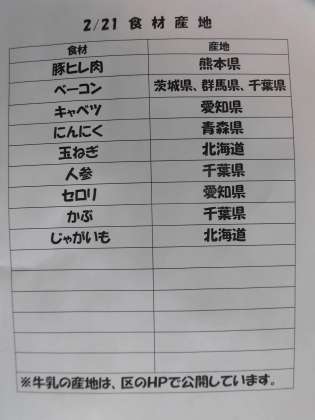 2/21 食材産地
食材 産地
豚ヒレ肉 熊本県
ベーコン 茨城県、群馬県、千葉県
キャベツ 愛知県
にんにく 青森県
玉ねぎ 北海道
人参 千葉県
セロリ 愛知県
かぶ 千葉県
じゃがいも 北海道
※牛乳の産地は、区のHPで公開しています。